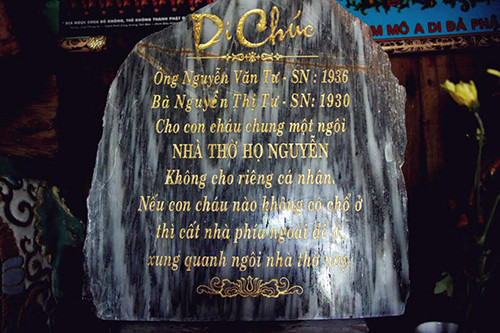 Di Chúc
Ông Nguyễn Văn Tư - SN: 1936
Bà Nguyễn Thị Tư - SN: 1930
Cho con cháu chung một ngôi
NHÀ THỜ HỌ NGUYỄN
Không cho riêng cá nhân.
Nếu con cháu nào không có chổ ở
thì cất nhà phía ngoài để ở
xung quanh ngôi nhà thờ này.